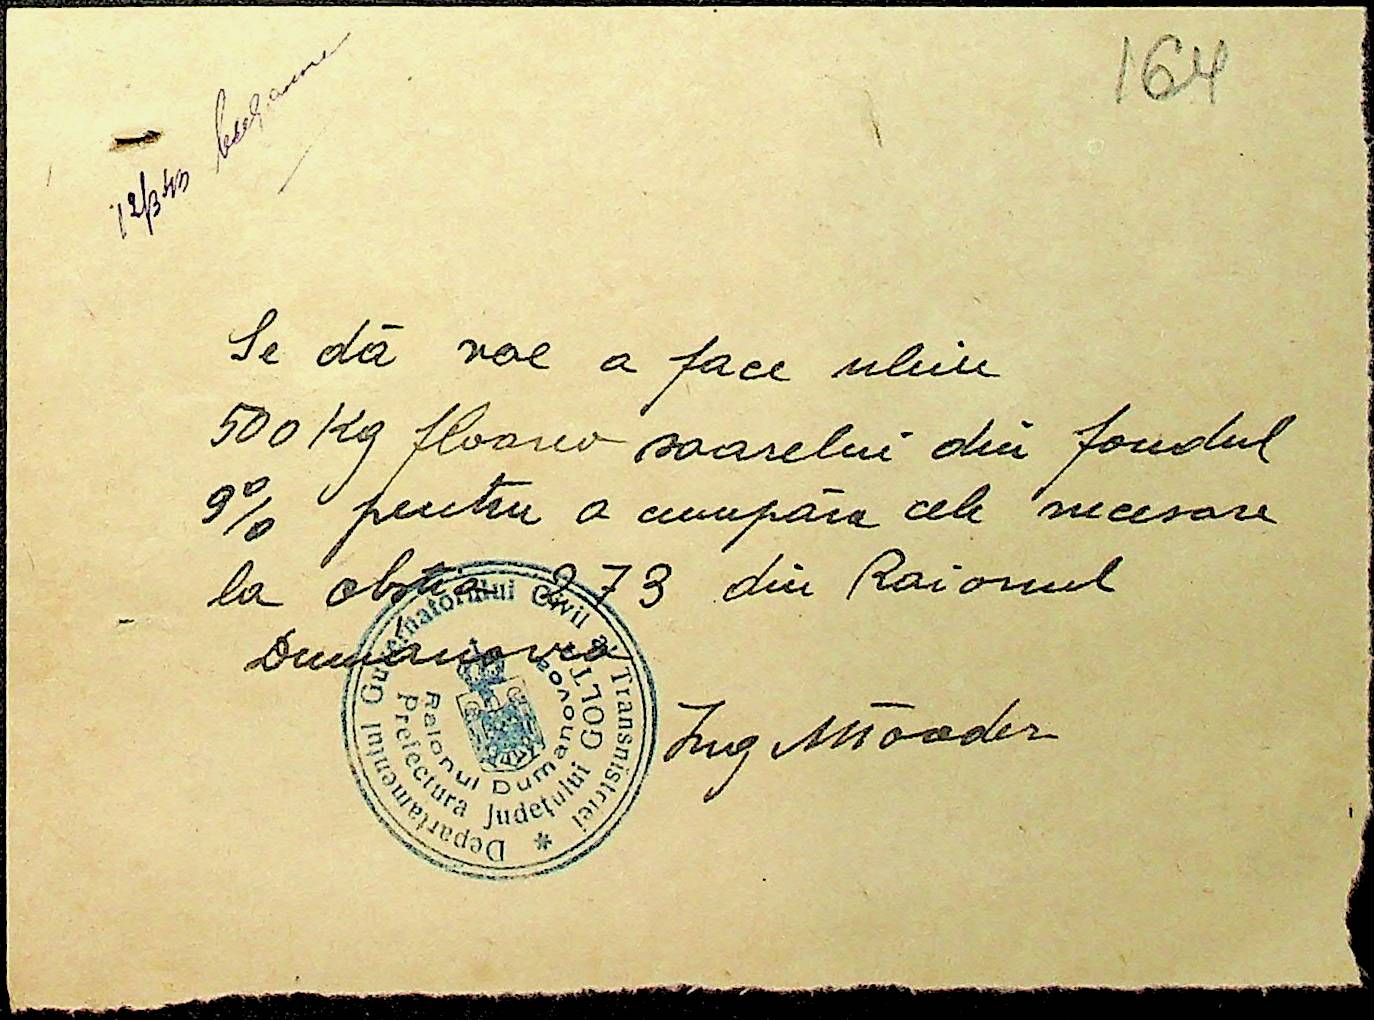 164
12/3 43
Se dă voe a face uleiu
500 Kg floarea soarelui din fondul
9% pentru a cumpăra cele necesare
la obștia 273 din Raionul
Dumanovca
Ing
Departamentul Guvernatorului Civil al Transnistriei *
Prefectura Județului GOLTA
Raionul Dumanovca